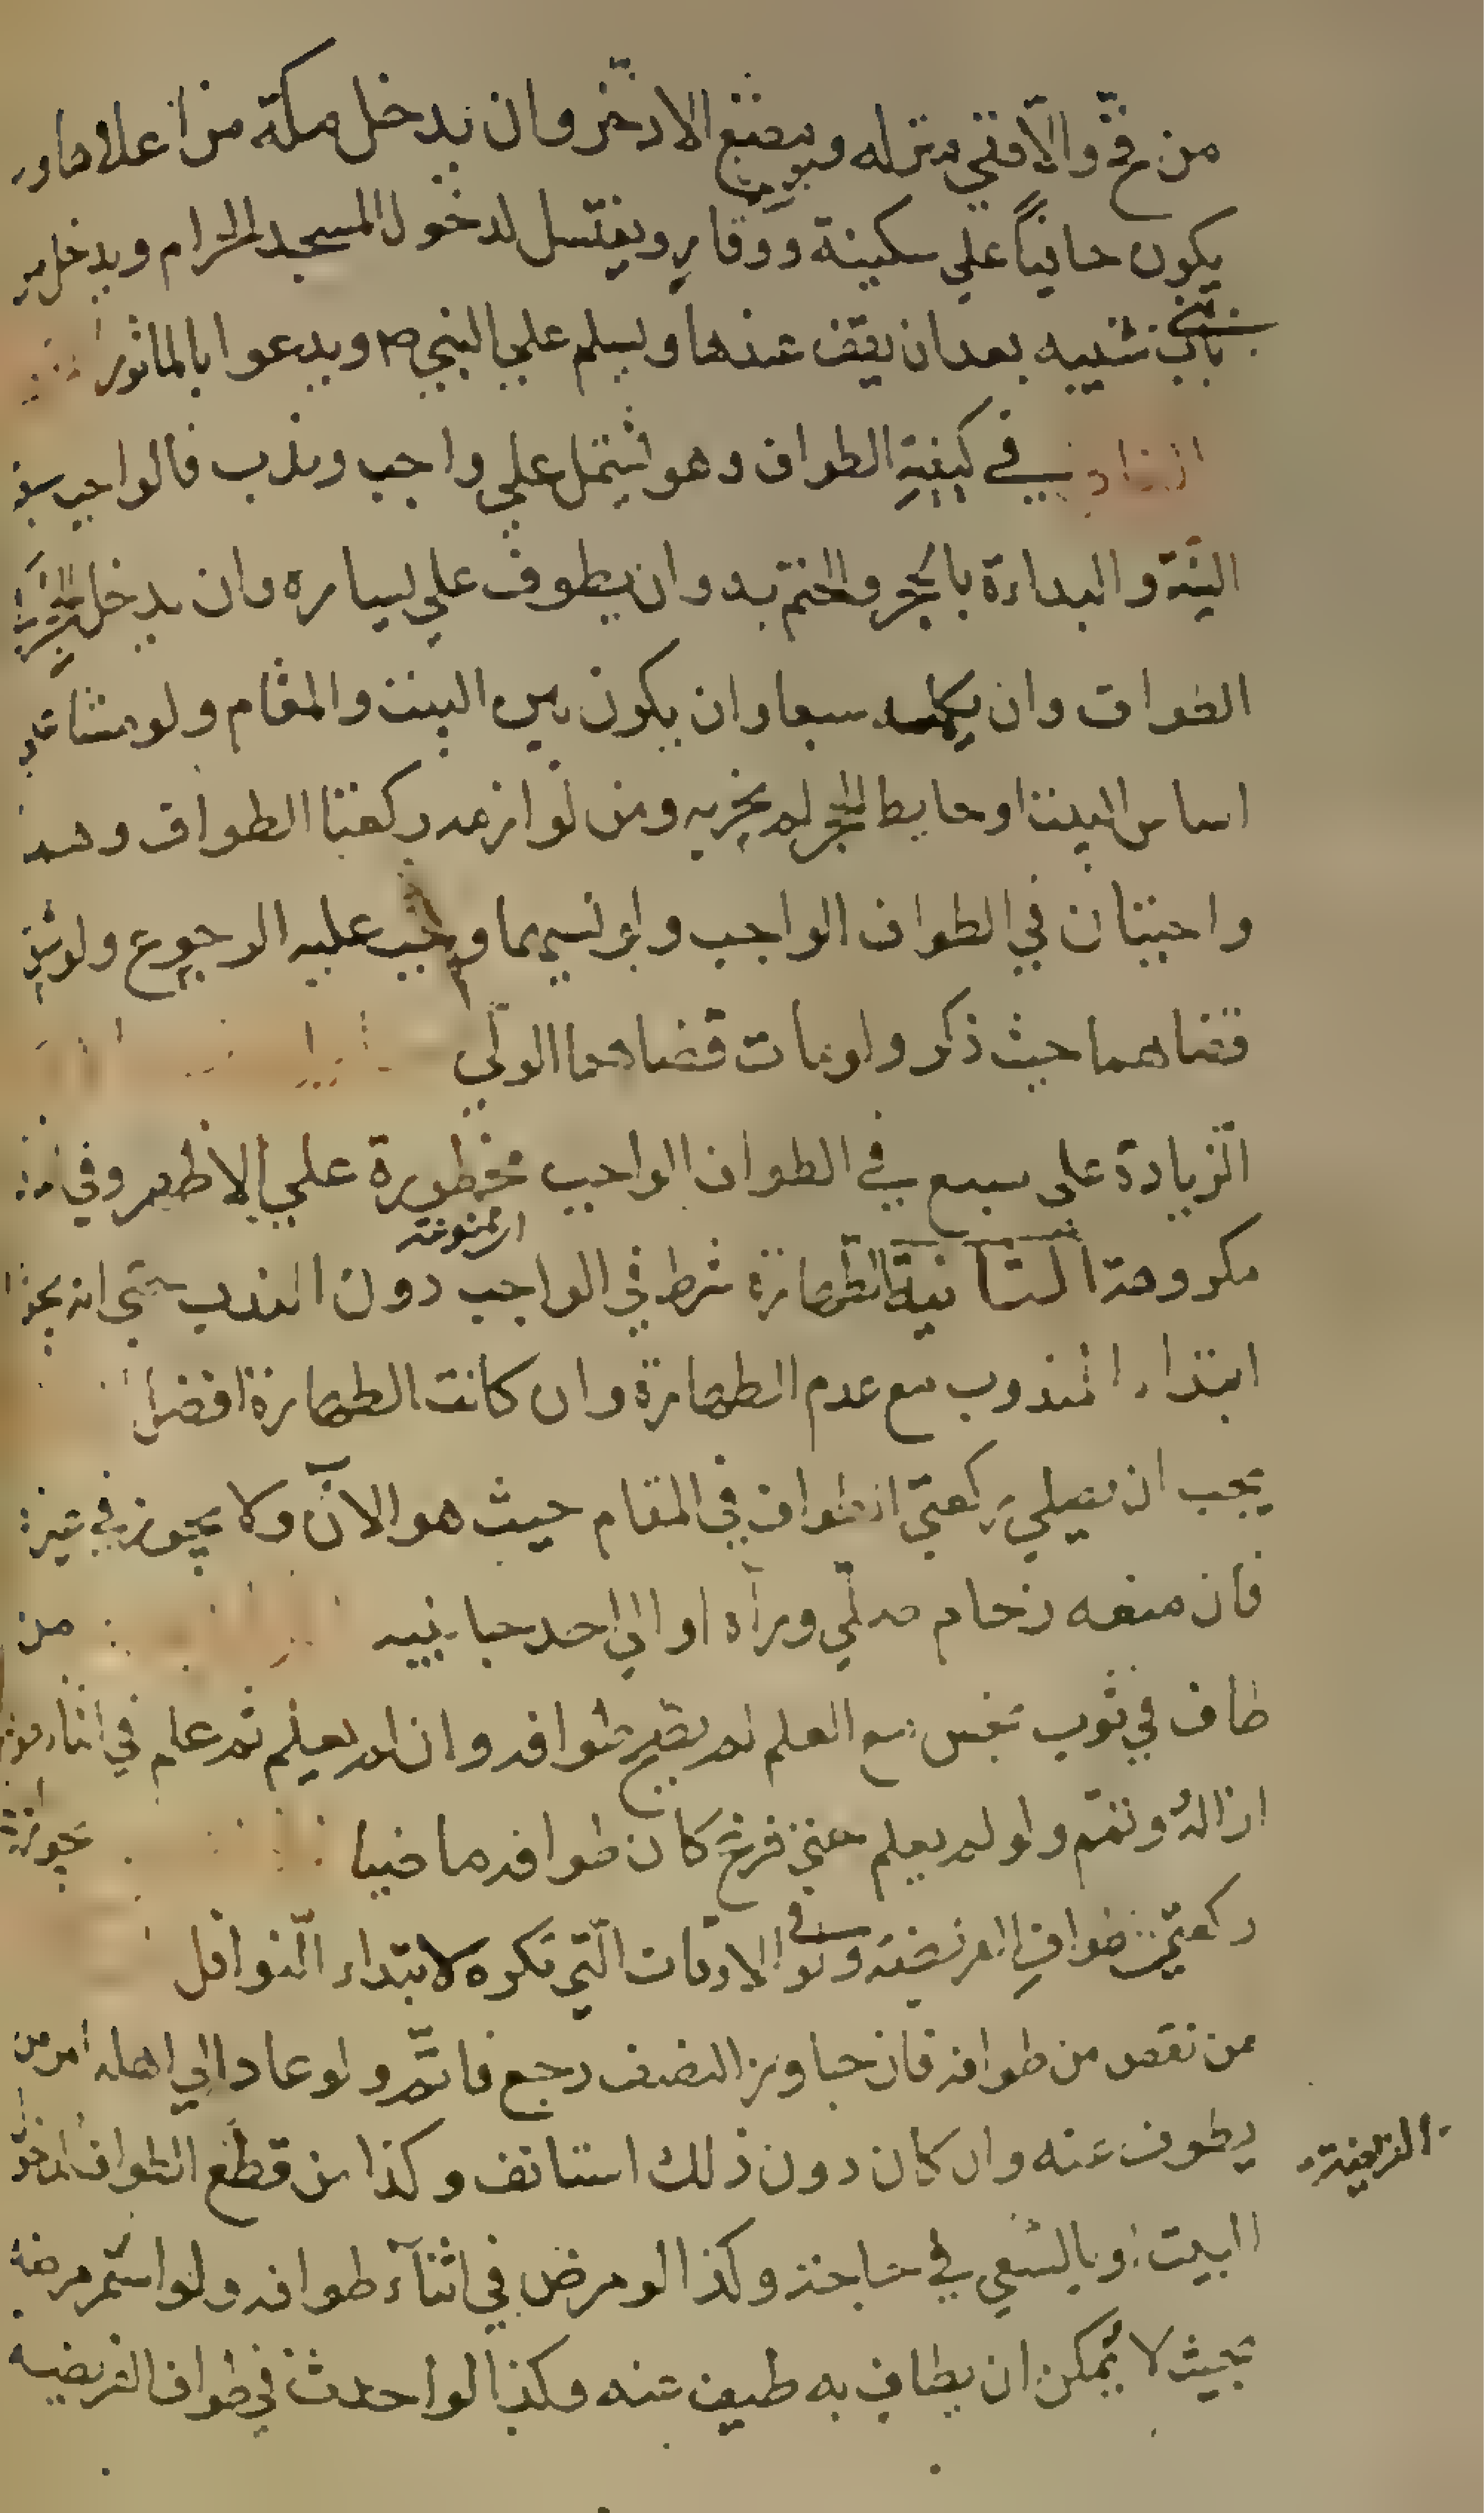 من فخ والّا ففي منزله ويمضغ الاذخر وان يدخل مكّة من اعلاها و
يكون حافيًا علي سكينة ووقار ويغتسل لدخول المسجد الحرام ويدخل من
باب بني شيبه بعد ان يقف عندها ويسلم علي النبي ص ويدعوا بالماثور
في كيفية الطواف وهو يشتمل علي واجب وندب فالواجب
النيّة والبداءة بالحجر والختم به وان يطوف علي يساره وان يدخل الحجر في
الطواف وان يكمله سبعا وان يكون بين البيت والمقام ولو مشا علي
اساس البيت او حايط الحجر لم يجزيه ومن لوازمه ركعتا الطواف وهما
واجبتان في الطواف الواجب ولو نسيهما وجب عليه الرجوع ولو شق
قضاهما حيث ذكر ولو مات قضاهما الولّي
الزيادة على سبع في الطواف الواجب محظورة علي الاظهر وفي
المندوبة
مكروهة الثانية الطهارة شرط في الواجب دون الندب حتي انه يجوز
ابتداء المندوب مع عدم الطهارة وان كانت الطهارة افضل
يجب ان يصلي ركعتي الطواف في المقام حيث هو الآن ولا يجوز في غيره
فان منعه زحام صلّي ورآه او الي احد جانبيه من
طاف في ثوب نجس مع العلم لم يصح طوافه وان لم يعلم ثم علم في اثناء طوافه
ازالهُ وتمّم ولو لم يعلم حتي فرغ كان طوافه ماضيا يجوز ان
ركعتي طواف الفريضة ولو في الاوقات الّتي تكره لابتداء النوافل
من نقص من طوافه فان جاوز النصف رجع فاتّم ولو عاد الي اهله امر من
يطوف عنه وان كان دون ذلك استانف وكذا من قطع الطواف لدخول
الفريضة
البيت او بالسعي في حاجة وكذا لو مرض في اثنآء طوافه ولو استمر مرضه
بحيث لا يُمكن ان يطاف به طيف عنه وكذا لو احدث في طواف الفريضه